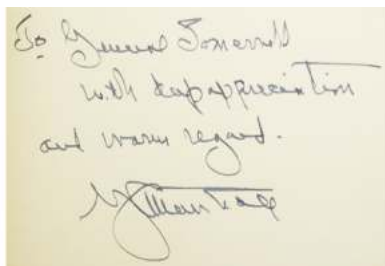 To General Somervell
with deep appreciation
and warm regard.
G.C. Marshall